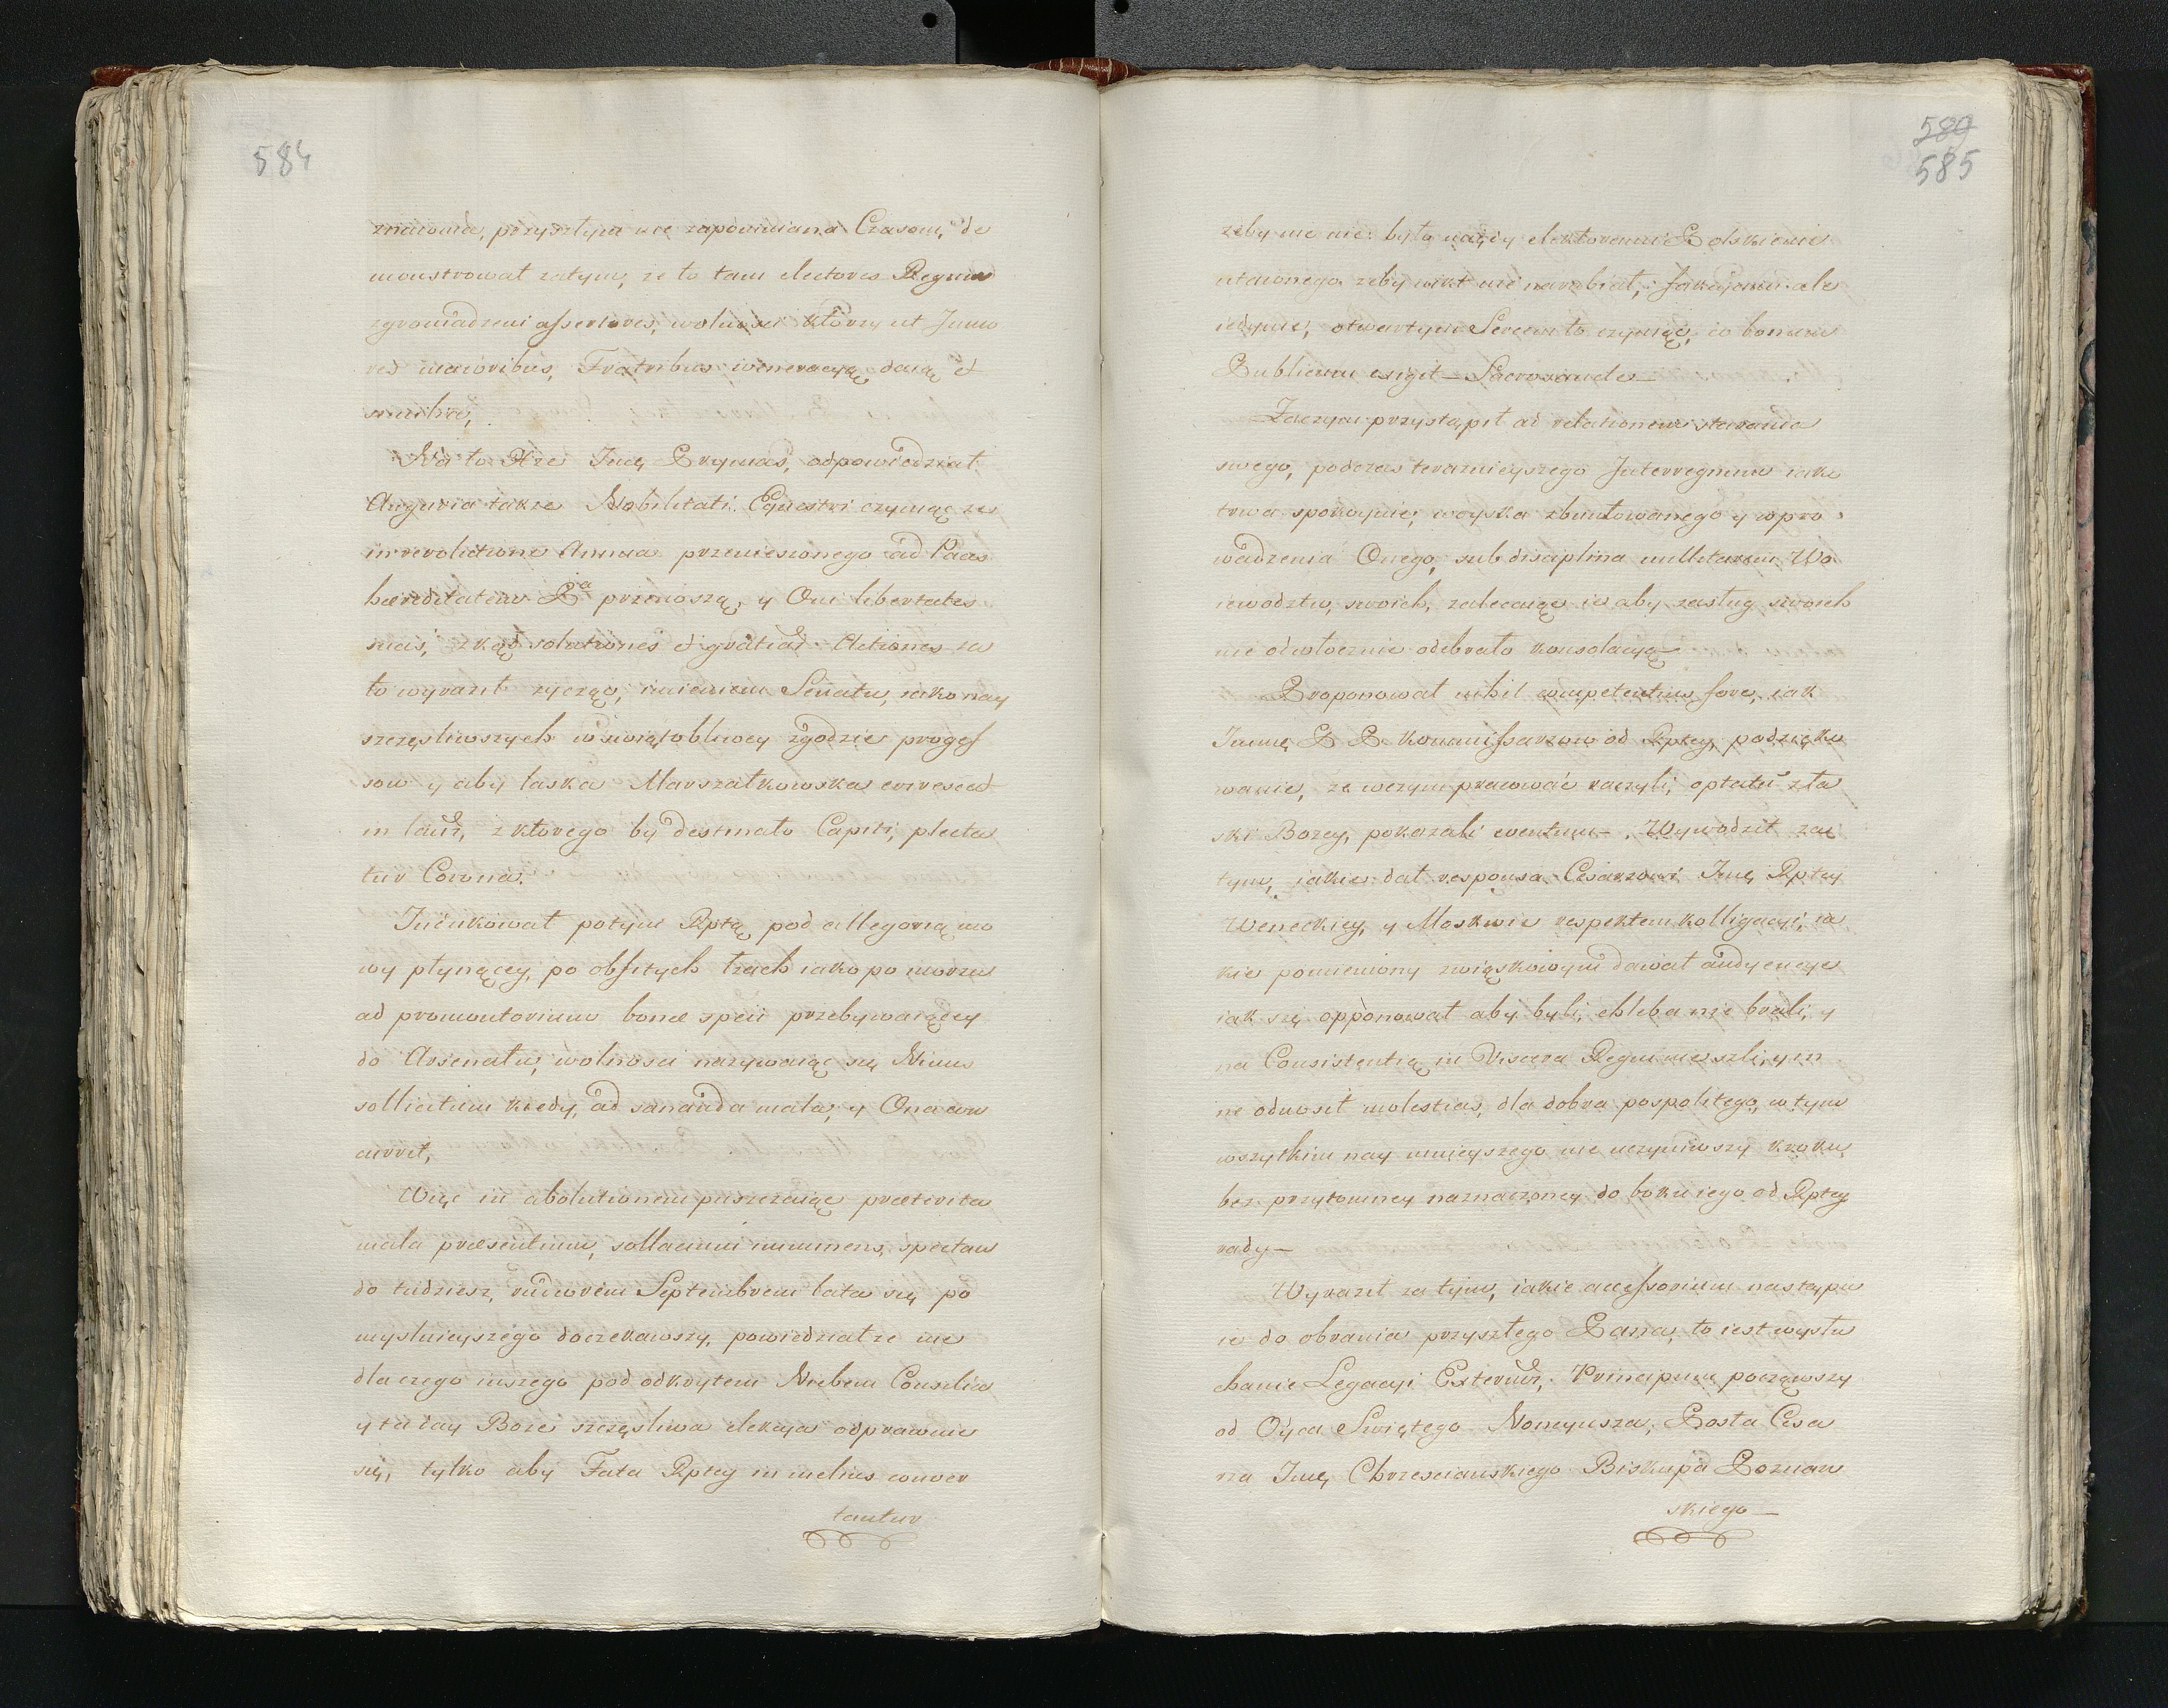 584
znaionia, przyszłym nie zapominiana Czasom, de
monstrował zatym, że to tam electores Regni
zgromadzeni assertores, wolnosci którzy ut Junio
res maioribus, Fratribus weneracyą daią et
similia,
Na to Xże Jmę Prymas, odpowiedział
Auguria także Nobilitati Equestri czyniąc ze
in revolutione Annua przeniesionego ad Paas
hæreditatem Pa przenoszą, y Oni libertates
suas, zkąd solutiones et gratiar Actiones za
to wyraził życząc, imieniem Senatu, iako nay
szczęsliwszych w swiątobliwey zgodzie progres
sow y aby laska Marszałkowska eviresceat
in laur, z ktorego by destinato Capiti, plecta
tur Corona.
Indukował potym Rptą pod allegoryą mo
wy płynącey, po obfitych łzach iako po morzu
ad promontorium bonæ spei przebywaiącey
do Arsenału, wolnosci nazywaiąc się Nimis
sollicitum kiedy, ad sananda mala, y Ona con
currit,
Więc in abolutionem puszczaiąc præterita
mala præsentium, sollacium imminens, spectan
do tudziesz, rudiorem Septembrem lata się po
myslnieyszego doczekawszy, powiedział że nie
dla czego inszego pod odkrytem Niebem Consilia
y ta day Boże szczęsliwa elekcya odprawuie
się, tylko aby Fata Rptey in melius conver
tantur
589
585
żeby nic nie było między elektorami Polskiemi
utaionego żeby nikt nie narabiał, fakcyami ale
iedynie, otwartym Sercem to czyniąc, co bonum
Publicum exigit — Sacrosancte —
Zaczym przystąpił ad relationem starania
swego, podczas teraznieyszego Interregnum iako
trwa spokoynie, woyska zbuntowanego y wpro
wadzenia Onego, sub disciplina militarem Wo
iewodztw, swoich, zalecaiąc ie aby zasług swoich
nie odwłocznie odebrało konsolacyą
Proponował nihil competentius fore, iak
Jmię P P. kommissarzow od Rptey, podzięko
wanie, że w czym pracować raczyli, optatū z ła
ski Bozey, pokazali eventum — . Wywodził za
tym, iakie dał responsa Cesarzowi Jmę Rptey
Weneckiey, y Moskwie respektem kolligacyi, ia
kie pomieniony związkowym dawał audyencye
iak się opponował aby byli, chleba nie brali, y
na Consistentią in Viscera Regni nie szli, y in
ne odnosił molestias, dla dobra pospolitego, w tym
wszytkim nay mnieyszego nie uczyniwszy kroku
bez przytomney naznaczoney do boku iego od Rptey
rady —
Wyraził za tym, iakie accessorium następu
ie do obrania przyszłego Pana, to iest wysłu
chanie Legacyi Externor, Principum począwszy
od Oyca Swiętego Noncyusza, Posła Cesa
rza Jmę Chrzescianskiego Biskupa Poznan
skiego —